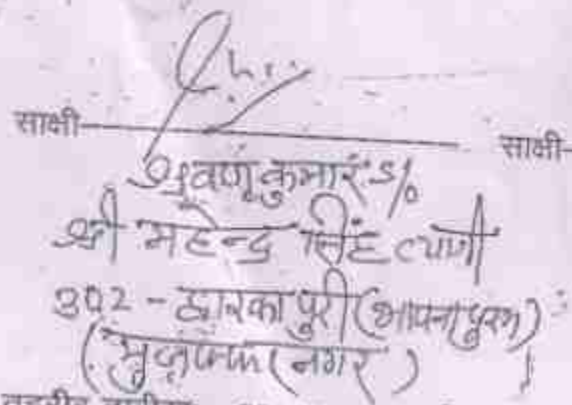 साक्षी साक्षी
श्रवण कुमार S/o
श्री महेन्द्र सिंह त्यागी
302 - द्वारका पुरी (भोपा पुरम)
(मुजफ्फर नगर)